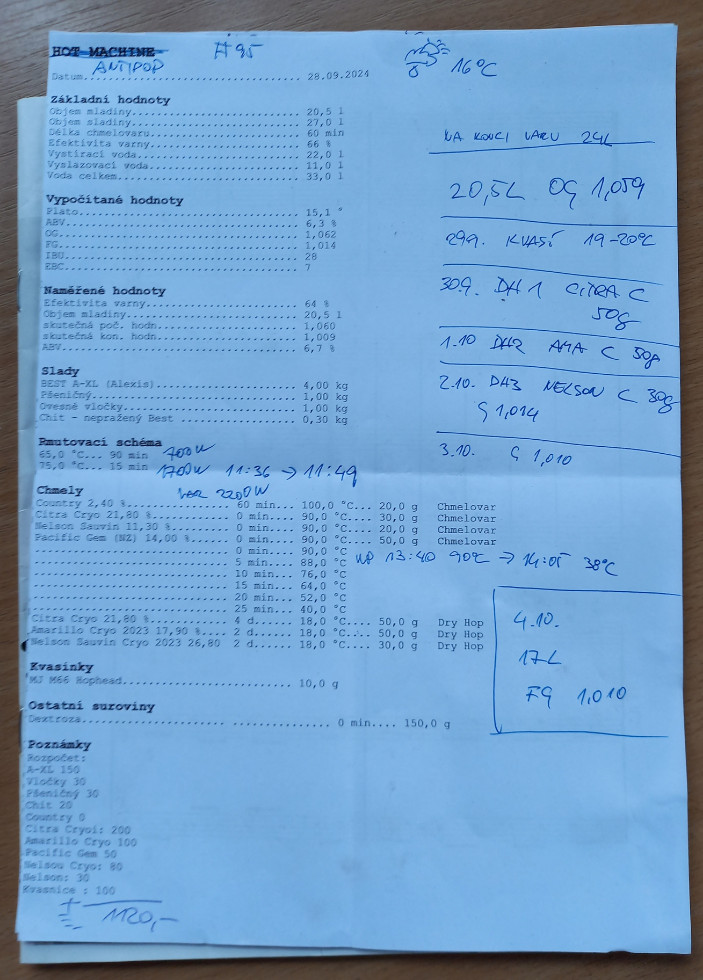 HOT MACHINE
# 95
16°C
ANTIPOP
Datum.................................. 28.09.2024
Základní hodnoty
Objem mladiny.......................... 20,5 l
Objem sladiny.......................... 27,0 l
Délka chmelovaru....................... 60 min
Efektivita varny....................... 66 %
Vystírací voda......................... 22,0 l
Vyslazovací voda....................... 11,0 l
Voda celkem............................ 33,0 l
Vypočítané hodnoty
Plato.................................. 15,1 °
ABV.................................... 6,3 %
OG..................................... 1,062
FG..................................... 1,014
IBU.................................... 28
EBC.................................... 7
Naměřené hodnoty
Efektivita varny....................... 64 %
Objem mladiny.......................... 20,5 l
skutečná poč. hodn..................... 1,060
skutečná kon. hodn..................... 1,009
ABV.................................... 6,7 %
Slady
BEST A-XL (Alexis)..................... 4,00 kg
Pšeničný............................... 1,00 kg
Ovesné vločky.......................... 1,00 kg
Chit - nepražený Best ................. 0,30 kg
Rmutovací schéma
65,0 °C... 90 min 700W
75,0 °C... 15 min 1700W 11:36 → 11:49
VAR 2200W
Chmely
Country 2,40 %............... 60 min... 100,0 °C... 20,0 g Chmelovar
Citra Cryo 21,80 %........... 0 min.... 90,0 °C.... 30,0 g Chmelovar
Nelson Sauvin 11,30 %........ 0 min.... 90,0 °C.... 20,0 g Chmelovar
Pacific Gem (NZ) 14,00 %..... 0 min.... 90,0 °C.... 50,0 g Chmelovar
............................. 0 min.... 90,0 °C
............................. 5 min.... 88,0 °C 13:40 90°C → 14:05 38°C
............................. 10 min... 76,0 °C
............................. 15 min... 64,0 °C
............................. 20 min... 52,0 °C
............................. 25 min... 40,0 °C
Citra Cryo 21,80 %........... 4 d...... 18,0 °C.... 50,0 g Dry Hop
Amarillo Cryo 2023 17,90 %.... 2 d...... 18,0 °C.... 50,0 g Dry Hop
Nelson Sauvin Cryo 2023 26,80 2 d...... 18,0 °C.... 30,0 g Dry Hop
Kvasinky
MJ M66 Hophead......................... 10,0 g
Ostatní suroviny
Dextroza.................... ............... 0 min.... 150,0 g
Poznámky
Rozpočet:
A-XL 150
Vločky 30
Pšeničný 30
Chit 20
Country 0
Citra Cryoi: 200
Amarillo Cryo 100
Pacific Gem 50
Nelsou Cryo: 80
Nelson: 30
Kvasnice : 100
1120,-
NA KONCI VARU 24L
20,5L OG 1,059
29.9. KVASÍ 19-20°C
30.9. DH1 CITRA C
50g
1.10 DH2 AMA C 50g
2.10. DH3 NELSON C 30g
G 1,014
3.10. G 1,010
4.10.
17L
FG 1,010